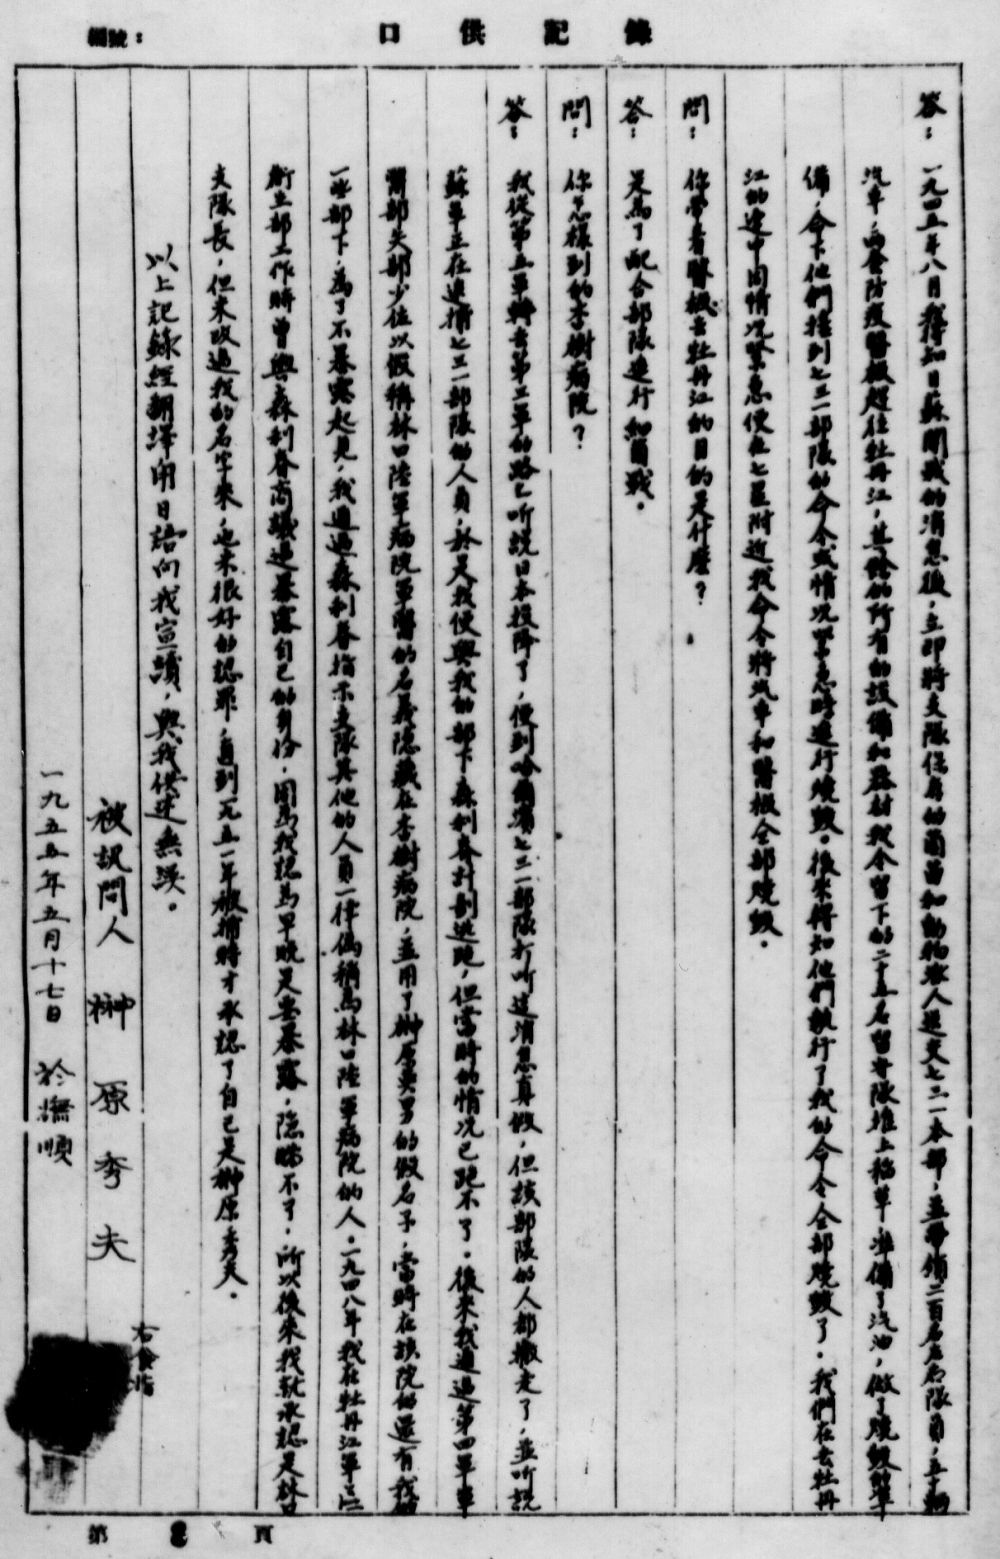 口供記錄
編號：
答：一九四五年八月獲知日蘇開戰的消息後，立即將支隊保有的菌苗和動物派人送交七三一本部，並帶領二百名左右隊員，五十輛
汽車，兩套防疫醫機趕往牡丹江，其餘的所有的設備和器材我令留下的二十五名留守隊堆上稻草，準備了汽油，做了燒毀的準
備，令下他們接到七三一部隊的命令或情況緊急時進行燒毀。後來得知他們執行了我的命令全部燒毀了。我們在去牡丹
江的途中因情況緊急便在七星附近我命令將汽車和醫機全部燒毀。
問：你帶着醫機去牡丹江的目的是什麼？
答：是為了配合部隊進行細菌戰。
問：你怎樣到的李樹病院？
答：我從第五軍轉去第三軍的路上听說日本投降了，便到哈爾濱七三一部隊打听這消息真假，但該部隊的人都撤走了，並听說
蘇軍正在追捕七三一部隊的人員，於是我便與我的部下森利春計劃逃跑，但當時的情況已跑不了。後來我通過第四軍軍
醫部矢部少佐以假稱林口陸軍病院軍醫的名義隱藏在李樹病院，並用了榊原英男的假名子，當時在該院的還有我的
一些部下，為了不暴露起見，我通過森利春指示支隊其他的人員一律偽稱為林口陸軍病院的人。一九四八年我在牡丹江軍區
衛生部工作時曾與森利春商議過暴露自己的身份，因為我認為早晚是要暴露，隱瞞不了，所以後來我就承認是林口
支隊長，但未改過我的名字來，也未很好的認罪，直到一九五一年被捕時才承認了自己是榊原秀夫。
以上記錄經翻譯用日語向我宣讀，與我供述無誤。
被訊問人 榊原秀夫
右食指
一九五五年五月十七日 於撫順
第 頁